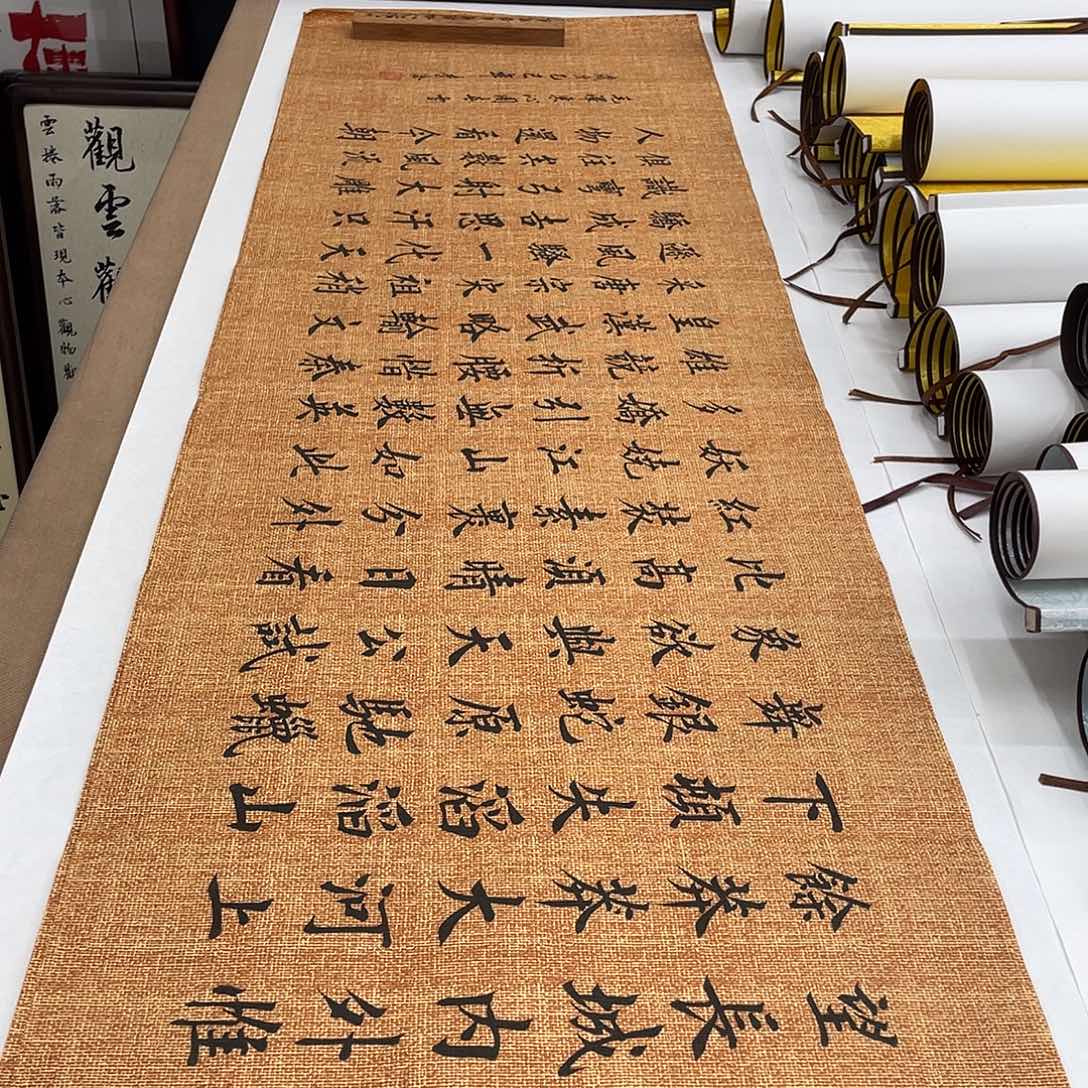 望長城内外惟
餘莽莽大河上
下頓失滔滔山
舞銀蛇原馳蠟
象欲與天公試
比高須晴日看
紅裝素裹分外
妖嬈江山如此
多嬌引無數英
雄競折腰惜秦
皇漢武略輸文
采唐宗宋祖稍
遜風騷一代天
驕成吉思汗只
識彎弓射大雕
俱往矣數風流
人物還看今朝
毛澤東沁園春雪
歲次乙巳
觀雲觀
雲捲雨落皆現本心觀物